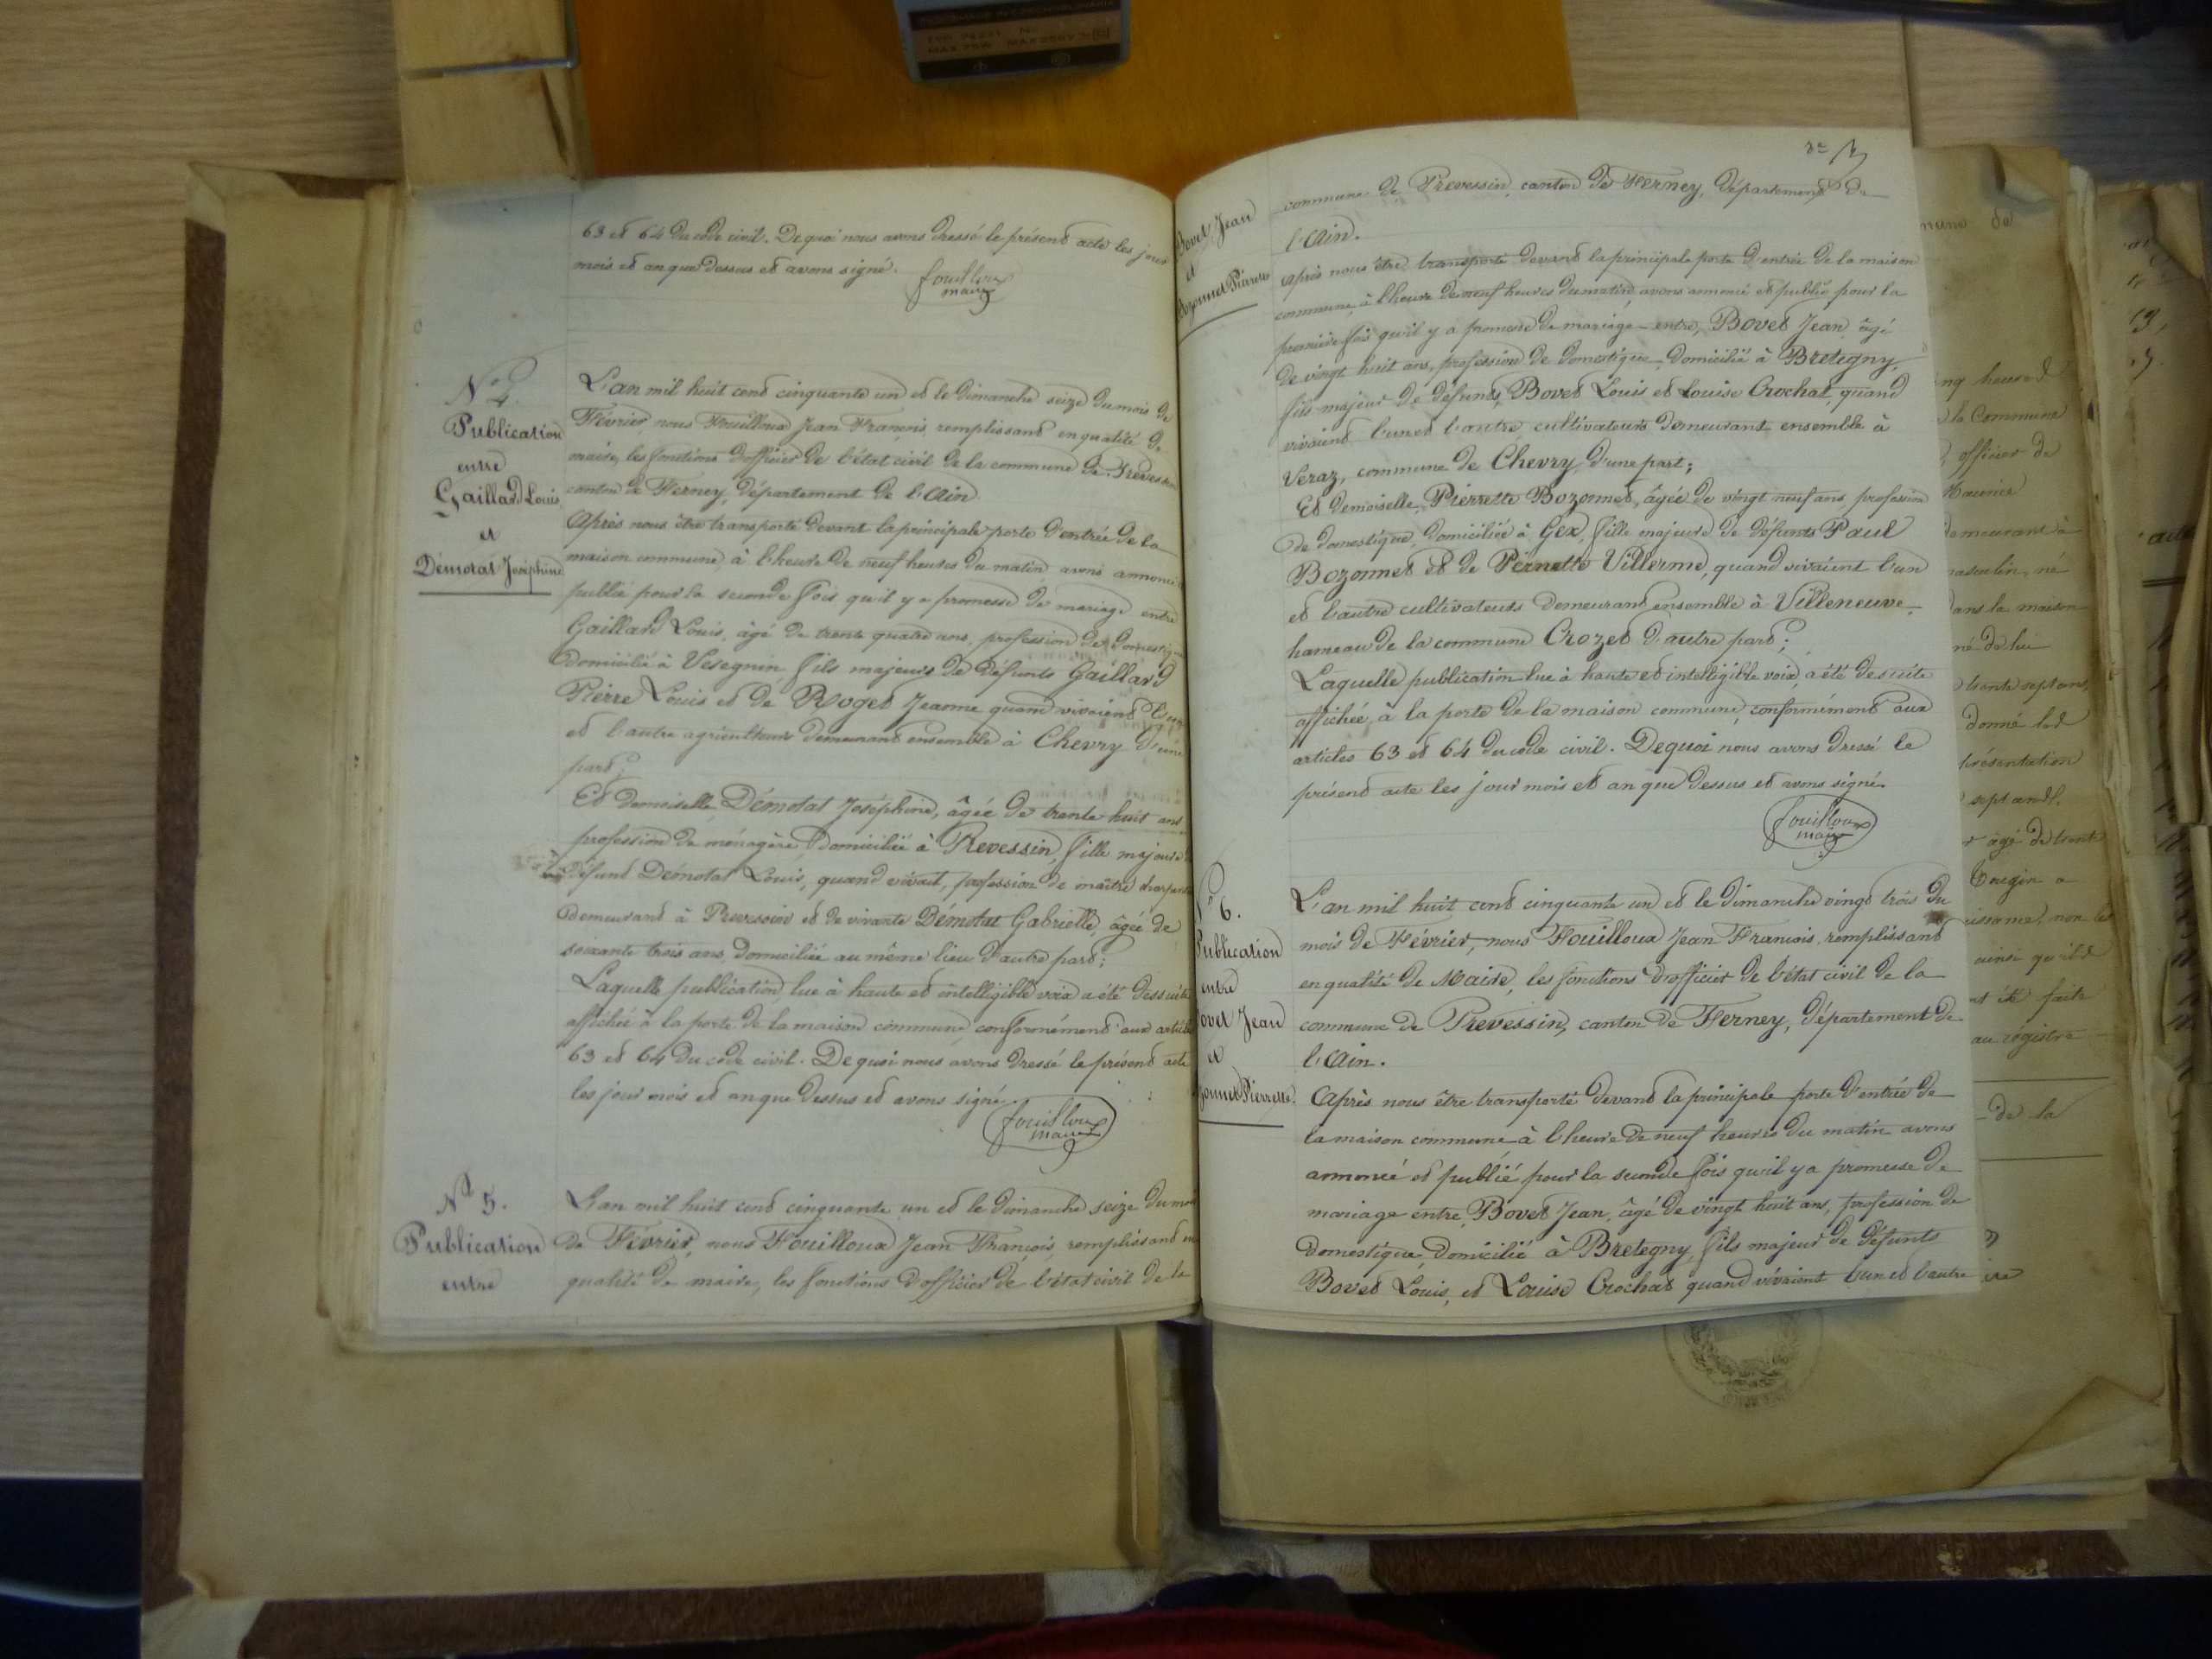 63 et 64 du code civil. De quoi nous avons dressé le présent acte les jour
mois et an que dessus et avons signé.
fouilloux
maire
N° 4.
Publication
entre
Gaillard Louis
et
Démotat Joséphine
L'an mil huit cent cinquante un et le dimanche seize du mois de
Février nous Fouilloux Jean François, remplissant en qualité de
maire, les fonctions d'officier de l'état civil de la commune de Prevessin
canton de Ferney, département de l'Ain.
Après nous être transporté devant la principale porte d'entrée de la
maison commune, à l'heure de neuf heures du matin, avons annoncé
publié pour la seconde fois qu'il y a promesse de mariage entre
Gaillard Louis, âgé de trente quatre ans, profession de domestique
domicilié à Vesegnin fils majeur de défunts Gaillard
Pierre Louis et de Roget Jeanne quand vivaient l'un
et l'autre agriculteurs demeurant ensemble à Chevry d'une
part;
Et demoiselle Démotat Joséphine, âgée de trente huit ans
profession de ménagère, domiciliée à Prevessin, fille majeure
défunt Démotat Louis, quand vivait, profession de maître charpentier
demeurant à Prevessin et de vivante Démotat Gabrielle, âgée de
soixante trois ans, domiciliée au même lieu d'autre part;
Laquelle publication lue à haute et intelligible voix a été dessuite
affichée à la porte de la maison commune, conformément aux articles
63 et 64 du code civil. De quoi nous avons dressé le présent acte
les jour mois et an que dessus et avons signé.
fouilloux
maire
N° 5.
Publication
entre
L'an mil huit cent cinquante un et le dimanche seize du mois
de Février, nous Fouilloux Jean François, remplissant en
qualité de maire, les fonctions d'officier de l'état civil de la
Bovet Jean
et
Bozonnet Pierrette
commune de Prevessin, canton de Ferney, département de
l'Ain.
Après nous être transporté devant la principale porte d'entrée de la maison
commune, à l'heure de neuf heures du matin, avons annoncé et publié pour la
première fois qu'il y a promesse de mariage entre, Bovet Jean, âgé
de vingt huit ans, profession de domestique, domicilié à Bretegny,
fils majeur de défunts, Bovet Louis et Louise Crochat, quand
vivaient l'un et l'autre cultivateurs demeurant ensemble à
Veraz, commune de Chevry d'une part;
Et demoiselle, Pierrette Bozonnet, âgée de vingt neuf ans, profession
de domestique, domiciliée à Gex, fille majeure de défunts Paul
Bozonnet et de Pernette Villerme, quand vivaient l'un
et l'autre cultivateurs demeurant ensemble à Villeneuve,
hameau de la commune Crozet d'autre part;
Laquelle publication lue à haute et intelligible voix, a été desuite
affichée, à la porte de la maison commune, conformément aux
articles 63 et 64 du code civil. De quoi nous avons dressé le
présent acte les jour mois et an que dessus et avons signé.
fouilloux
maire
N° 6.
Publication
entre
Bovet Jean
et
Bozonnet Pierrette.
L'an mil huit cent cinquante un et le dimanche vingt trois du
mois de Février, nous Fouilloux Jean François, remplissant
en qualité de Maire, les fonctions d'officier de l'état civil de la
commune de Prevessin, canton de Ferney, département de
l'Ain.
Après nous être transporté devant la principale porte d'entrée de
la maison commune à l'heure de neuf heures du matin avons
annoncé et publié pour la seconde fois qu'il y a promesse de
mariage entre, Bovet Jean, âgé de vingt huit ans, profession de
domestique, domicilié à Bretegny, fils majeur de défunts
Bovet Louis, et Louise Crochat quand vivaient l'un et l'autre
la Commune
officier de
Maurice
demeurant à
masculin, né
dans la maison
né de lui
trente sept ans,
donné le
présentation
âgé de trente
non les
ainsi qu'il
été faite
au régistre
de la